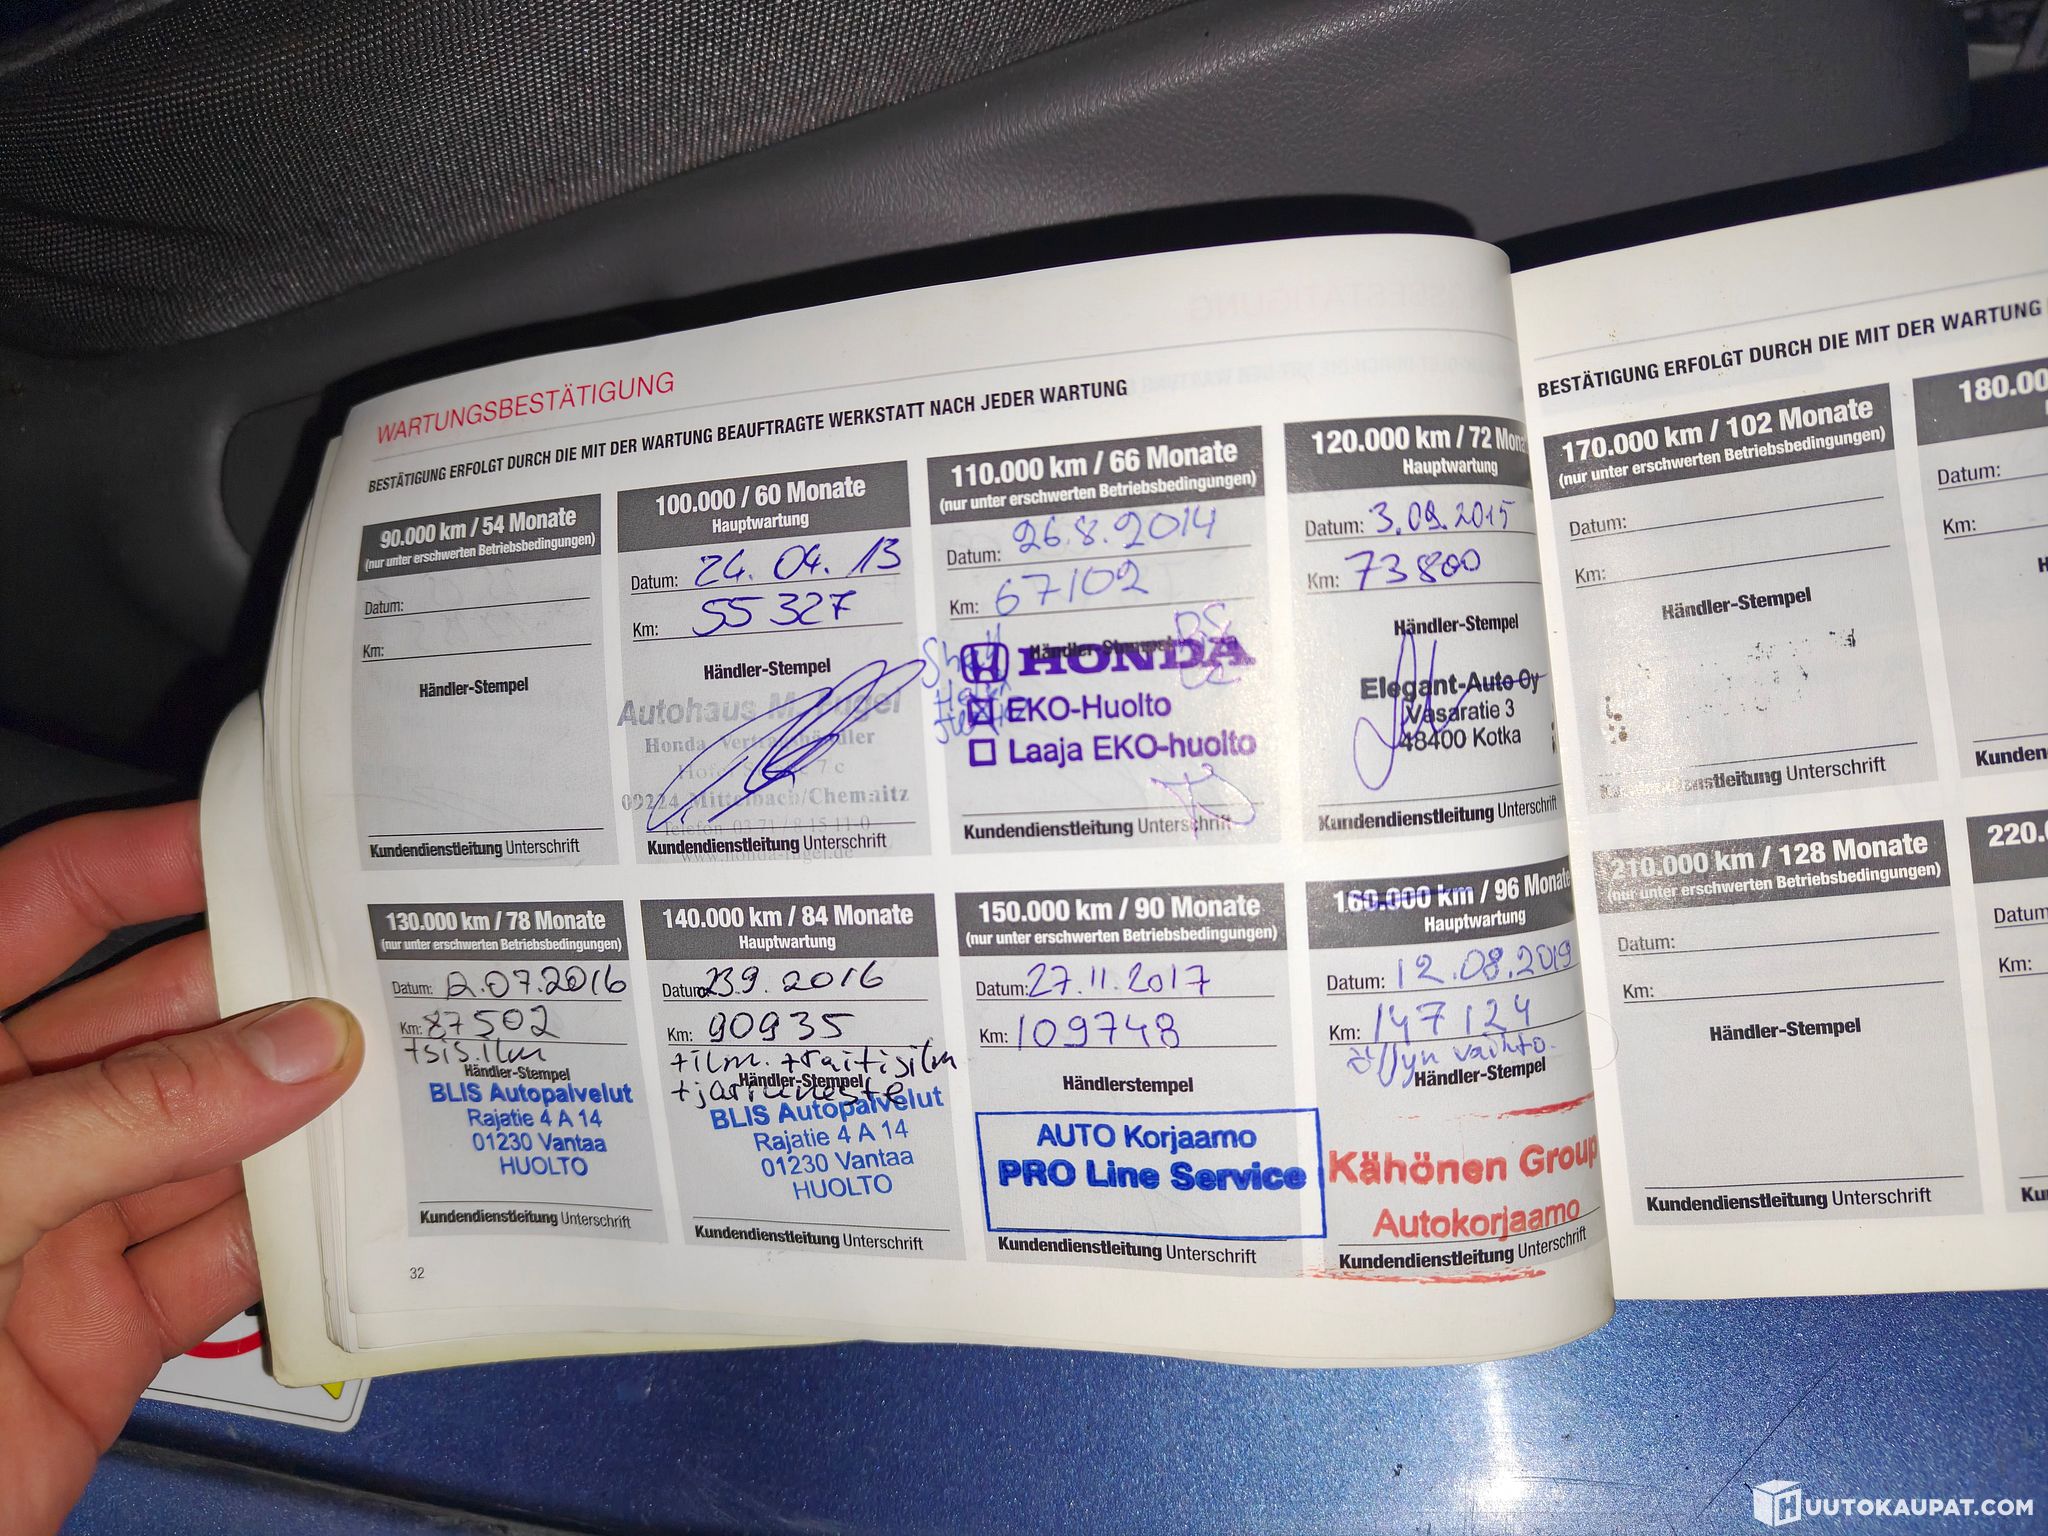 WARTUNGSBESTÄTIGUNG
BESTÄTIGUNG ERFOLGT DURCH DIE MIT DER WARTUNG BEAUFTRAGTE WERKSTATT NACH JEDER WARTUNG
90.000 km / 54 Monate
(nur unter erschwerten Betriebsbedingungen)
Datum:
Km:
Händler-Stempel
Kundendienstleitung Unterschrift
100.000 / 60 Monate
Hauptwartung
Datum: 24.04.13
Km: 55327
Händler-Stempel
Autohaus M.
Honda Vertragshändler
09224 Mittelbach/Chemnitz
Kundendienstleitung Unterschrift
110.000 km / 66 Monate
(nur unter erschwerten Betriebsbedingungen)
Datum: 26.8.2014
Km: 67102
Händler-Stempel
HONDA
EKO-Huolto
Laaja EKO-huolto
Kundendienstleitung Unterschrift
120.000 km / 72
Hauptwartung
Datum: 3.09.2015
Km: 73800
Händler-Stempel
Elegant-Auto Oy
Vasaratie 3
48400 Kotka
Kundendienstleitung Unterschrift
130.000 km / 78 Monate
(nur unter erschwerten Betriebsbedingungen)
Datum: 12.07.2016
Km: 87502
+sis.ilm
Händler-Stempel
BLIS Autopalvelut
Rajatie 4 A 14
01230 Vantaa
HUOLTO
Kundendienstleitung Unterschrift
140.000 km / 84 Monate
Hauptwartung
Datum: 23.9.2016
Km: 90935
+ilm. +raitisilm
+jarruneste
Händler-Stempel
BLIS Autopalvelut
Rajatie 4 A 14
01230 Vantaa
HUOLTO
Kundendienstleitung Unterschrift
150.000 km / 90 Monate
(nur unter erschwerten Betriebsbedingungen)
Datum: 27.11.2017
Km: 109748
Händlerstempel
AUTO Korjaamo
PRO Line Service
Kundendienstleitung Unterschrift
160.000 km / 96 Monate
Hauptwartung
Datum: 12.08.2019
Km: 147124
öljyn vaihto.
Händler-Stempel
Kähönen Group
Autokorjaamo
Kundendienstleitung Unterschrift
32
BESTÄTIGUNG ERFOLGT DURCH DIE MIT DER WARTUNG
170.000 km / 102 Monate
(nur unter erschwerten Betriebsbedingungen)
Datum:
Km:
Händler-Stempel
Unterschrift
180.00
Datum:
Km:
210.000 km / 128 Monate
(nur unter erschwerten Betriebsbedingungen)
Datum:
Km:
Händler-Stempel
Kundendienstleitung Unterschrift
220.
Datum
Km:
HUUTOKAUPAT.COM